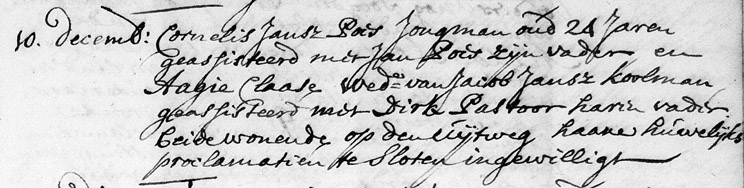 10. decemb: Cornelis Jansz Pois Jongman oud 24 Jaren
geassisteerd met Jan Pois zijn vader en
Aagie Claase Wed.e van Jacob Jansz Koolman
geassisteerd met Dirk Pastoor haren vader
beide wonende op den uijtweg haare huwelijks
proclamatien te Sloten ingewilligt